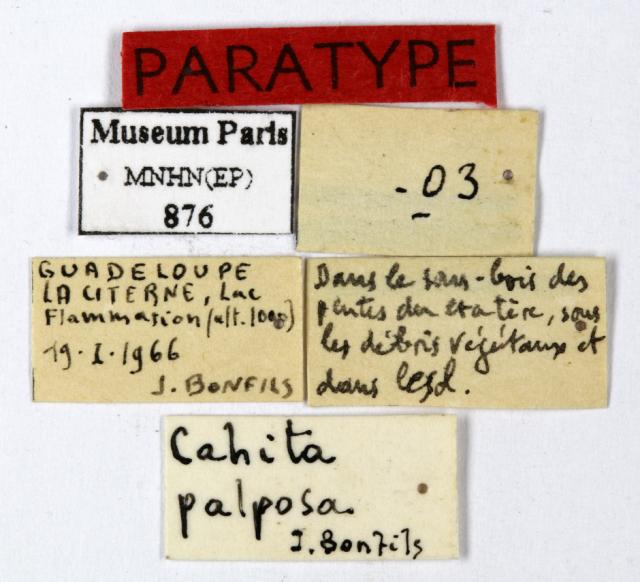 PARATYPE
Museum Paris
MNHN(EP)
876
-03
GUADELOUPE
LA CITERNE, Lac
Flammarion (alt. 1000)
19.I.1966
J. BONFILS
Dans le sous-bois des
pentes du cratère, sous
les débris végétaux et
dans le sol.
Cahita
palposa
J. Bonfils